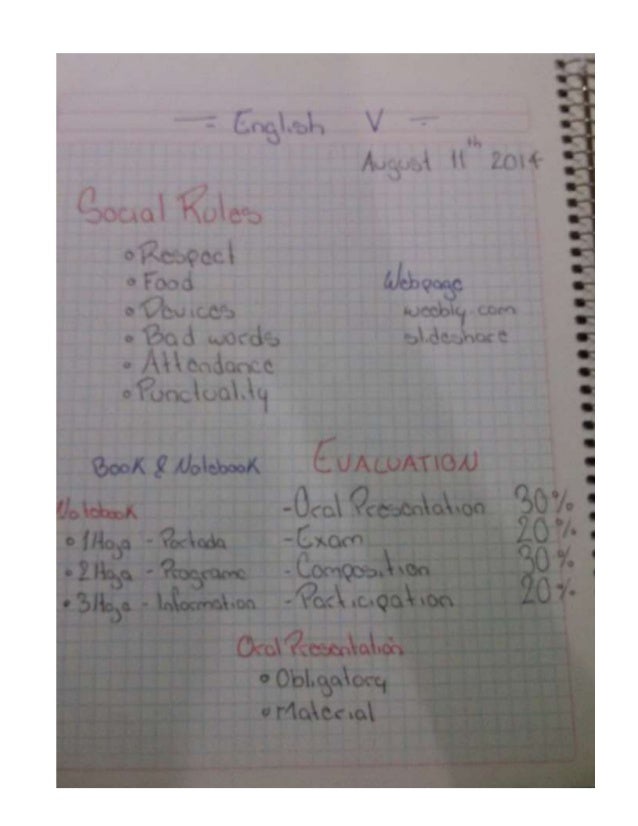 English V
August 11th 2014
Social Rules
• Respect
• Food
• Devices
• Bad words
• Attendance
• Punctuality
Webpage
weebly.com
slideshare
Book & Notebook
Notebook
• 1 Hoja - Portada
• 2 Hoja - Programa
• 3 Hoja - Information
EVALUATION
- Oral Presentation 30%
- Exam 20%
- Composition 30%
- Participation 20%
Oral Presentation
• Obligatory
• Material